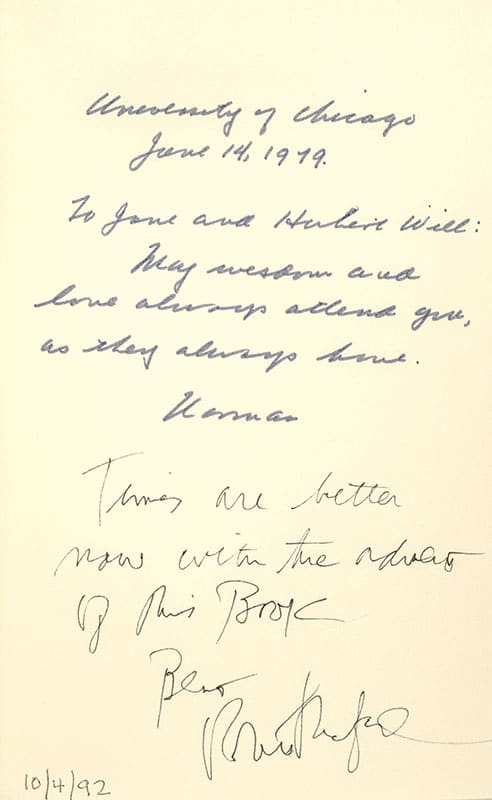 University of Chicago
June 14, 1979.
To Jane and Hubert Will:
May wisdom and
love always attend you,
as they always have.
Norman
Times are better
now with the advent
of this Book
Best
10/4/92